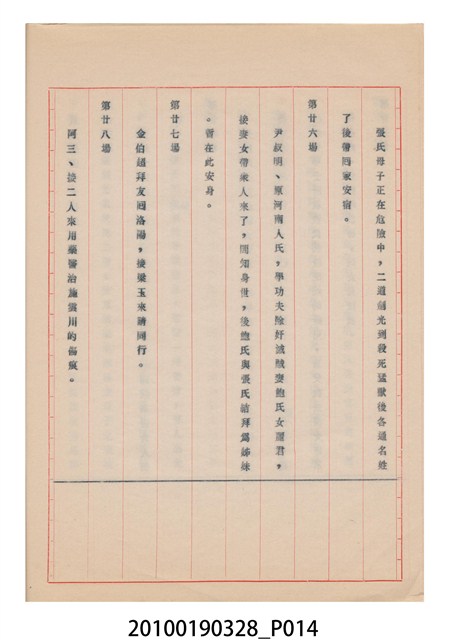 張氏母子正在危險中，二道劍光到殺死猛獸後各通名姓
了後帶回家安宿。
第廿六場
尹叔明、原河南人氏，學功夫除奸滅賊妻鮑氏女麗君，
後妻女帶衆人來了，問知身世，後鮑氏與張氏結拜爲姊妹
。暫在此安身。
第廿七場
金伯超拜友回洛陽，後樂玉來請同行。
第廿八場
阿三、後二人來用藥醫治施雲川的傷痕。
20100190328_P014